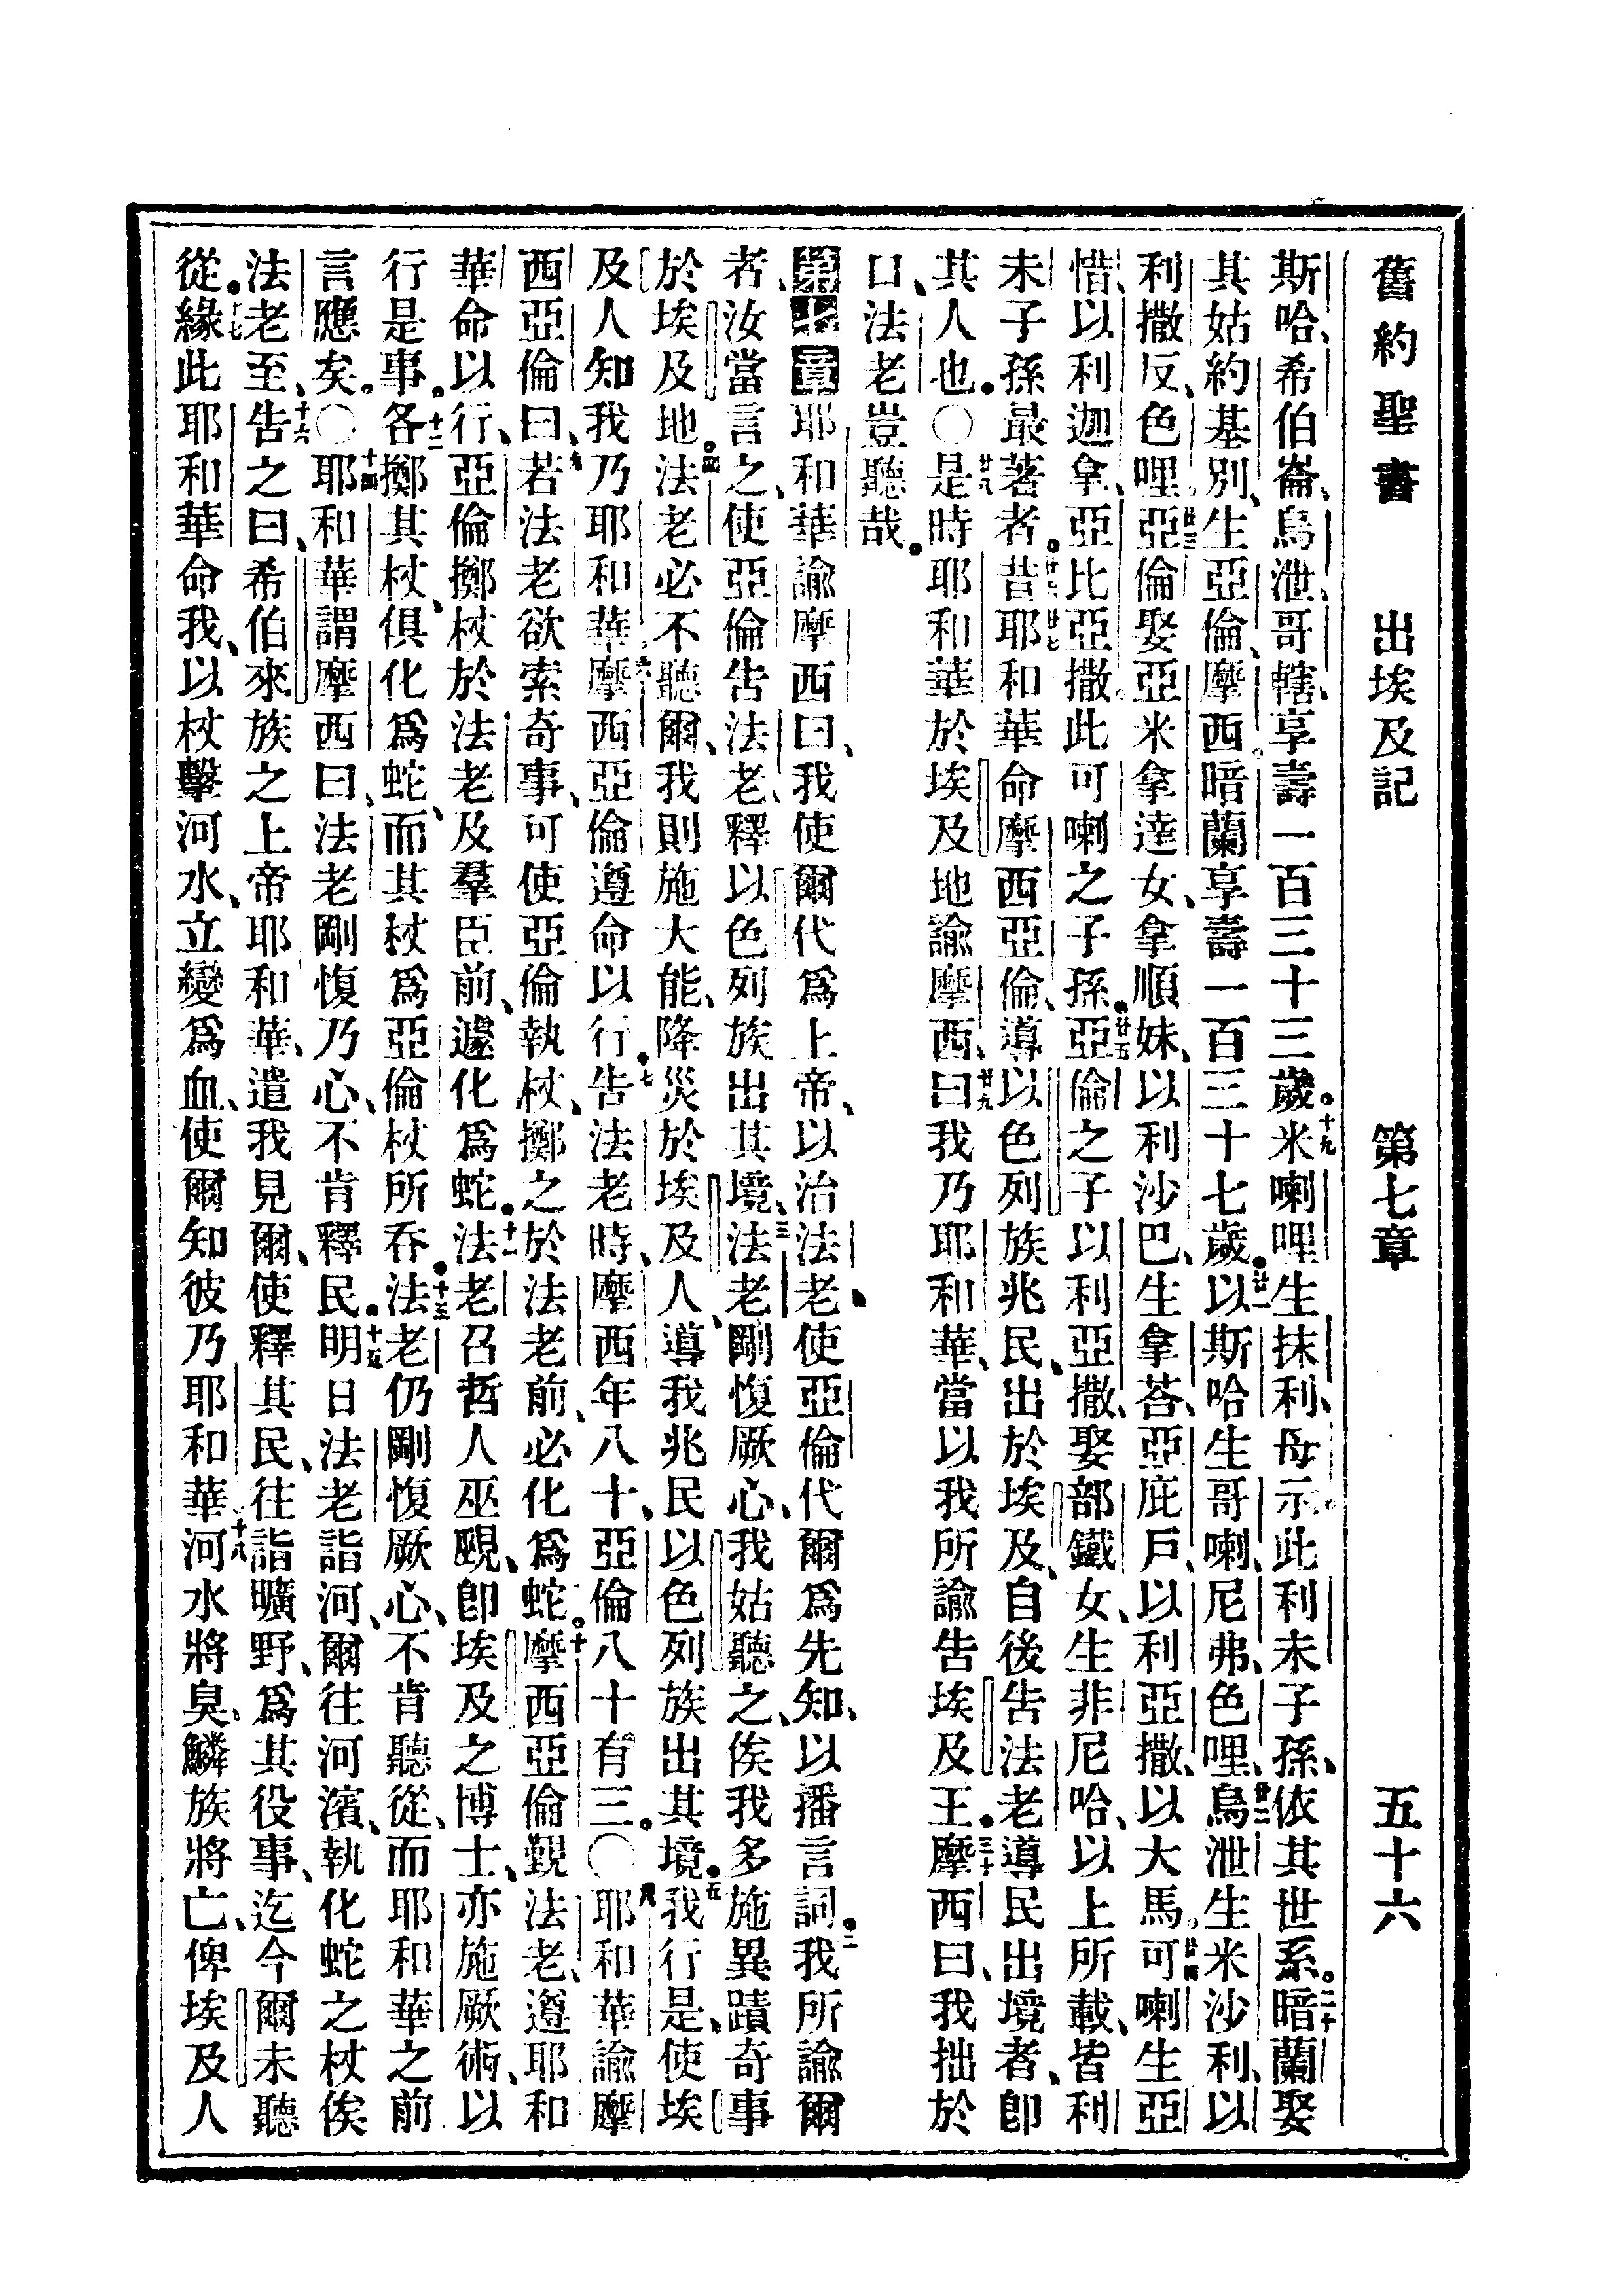 舊約聖書 出埃及記 第七章 五十六
斯哈、希伯崙、烏泄、哥轄、享壽一百三十三歲。十九米喇哩生抹利、母示、此利未子孫、依其世系。二十暗蘭娶
其姑約基別、生亞倫、摩西。暗蘭享壽一百三十七歲。廿一以斯哈生哥喇、尼弗、色哩。廿二烏泄生米沙利、以
利撒反、色哩。廿三亞倫娶亞米拿達女、拿順妹、以利沙巴、生拿荅、亞庇戶、以利亞撒、以大馬。廿四可喇生亞
惜、以利迦拿、亞比亞撒。此可喇之子孫。廿五亞倫之子以利亞撒、娶部鐵女、生非尼哈、以上所載、皆利
未子孫最著者。廿六昔耶和華廿七命摩西亞倫、導以色列族兆民、出於埃及、自後告法老導民出境者、卽
其人也。〇廿八是時耶和華於埃及地諭摩西、廿九曰我乃耶和華、當以我所諭告埃及王。三十摩西曰、我拙於
口、法老豈聽哉。
第七章耶和華諭摩西曰、我使爾代爲上帝、以治法老、使亞倫代爾爲先知、以播言詞。二我所諭爾
者、汝當言之、使亞倫告法老、釋以色列族出其境、三法老剛愎厥心、我姑聽之、俟我多施異蹟奇事
於埃及地。四法老必不聽爾、我則施大能、降災於埃及人、導我兆民以色列族出其境。五我行是、使埃
及人知我乃耶和華。六摩西亞倫遵命以行。七告法老時、摩西年八十、亞倫八十有三。〇八耶和華諭摩
西亞倫曰、九若法老欲索奇事、可使亞倫執杖、擲之於法老前、必化爲蛇。十摩西亞倫覲法老、遵耶和
華命以行、亞倫擲杖於法老及羣臣前、遽化爲蛇。十一法老召哲人巫覡、卽埃及之博士、亦施厥術、以
行是事。十二各擲其杖、俱化爲蛇、而其杖爲亞倫杖所吞。十三法老仍剛愎厥心、不肯聽從、而耶和華之前
言應矣。〇十四耶和華謂摩西曰、法老剛愎乃心、不肯釋民。十五明日法老詣河、爾往河濱、執化蛇之杖俟
法老至、十六告之曰、希伯來族之上帝耶和華、遣我見爾、使釋其民、往詣曠野、爲其役事、迄今爾未聽
從。十七緣此耶和華命我、以杖擊河水、立變爲血、使爾知彼乃耶和華。十八河水將臭、鱗族將亡、俾埃及人